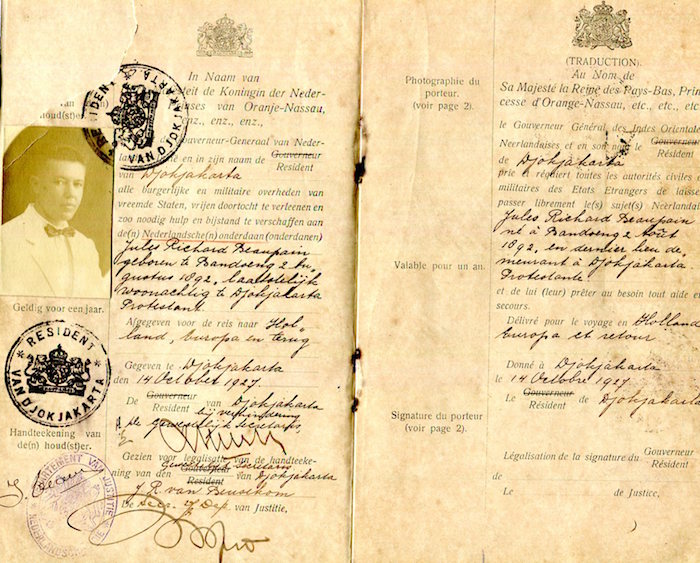 In Naam van
teit de Koningin der Neder-
nses van Oranje-Nassau,
enz., enz.,
van
houd(st)er.
RESIDENT
VAN DJOKJAKARTA
ouverneur-Generaal van Neder-
en in zijn naam de Gouverneur
Résident
van Djokjakarta
alle burgerlijke en militaire overheden van
vreemde Staten, vrijen doortocht te verleenen en
zoo noodig hulp en bijstand te verschaffen aan
de(n) Nederlandsche(n) onderdaan (onderdanen)
Jules Richard Beaupain
geboren te Bandoeng 2 Au-
gustus 1892, laatstelijk
woonachtig te Djokjakarta
Protestant
Geldig voor een jaar.
Afgegeven voor de reis naar Hol-
land, Europa en terug
RESIDENT
VAN DJOKJAKARTA
Gegeven te Djokjakarta
den 14 October 1927.
De Gouverneur
Résident van Djokjakarta
bij verhindering
de Gewestelijk Secretaris
Handteekening van
de(n) houd(st)er.
Gezien voor legalisatie van de handteeke-
Gewestelijk Secretaris
ning van den Gouverneur van Djokjakarta
Resident
J. R. van Beusekom
De Secr. Dep. van Justitie,
DEPARTEMENT VAN JUSTITIE
(TRADUCTION).
Au Nom de
Sa Majesté la Reine des Pays-Bas, Prin
cesse d'Orange-Nassau, etc., etc., etc
Photographie du
porteur.
(voir page 2).
le Gouverneur Général des Indes Orientale
Neerlandaises et en son nom le Gouverneur
Résident
de Djokjakarta
prie et requiert toutes les autorités civiles
militaires des Etats Etrangers de laisse
passer librement le(s) sujet(s) Neerlandai
Jules Richard Beaupain
né à Bandoeng 2 Août
1892, en dernier lieu de-
meurant à Djokjakarta
Protestante
Valable pour un an.
et de lui (leur) prêter au besoin tout aide e
secours.
Délivré pour le voyage en Hollande
Europa et retour
Donné à Djokjakarta
le 14 Octobre 1927.
Le Gouverneur
Résident de Djokjakarta
Signature du porteur
(voir page 2).
Légalisation de la signature du Gouverneur
Résident
de
Le de Justice,